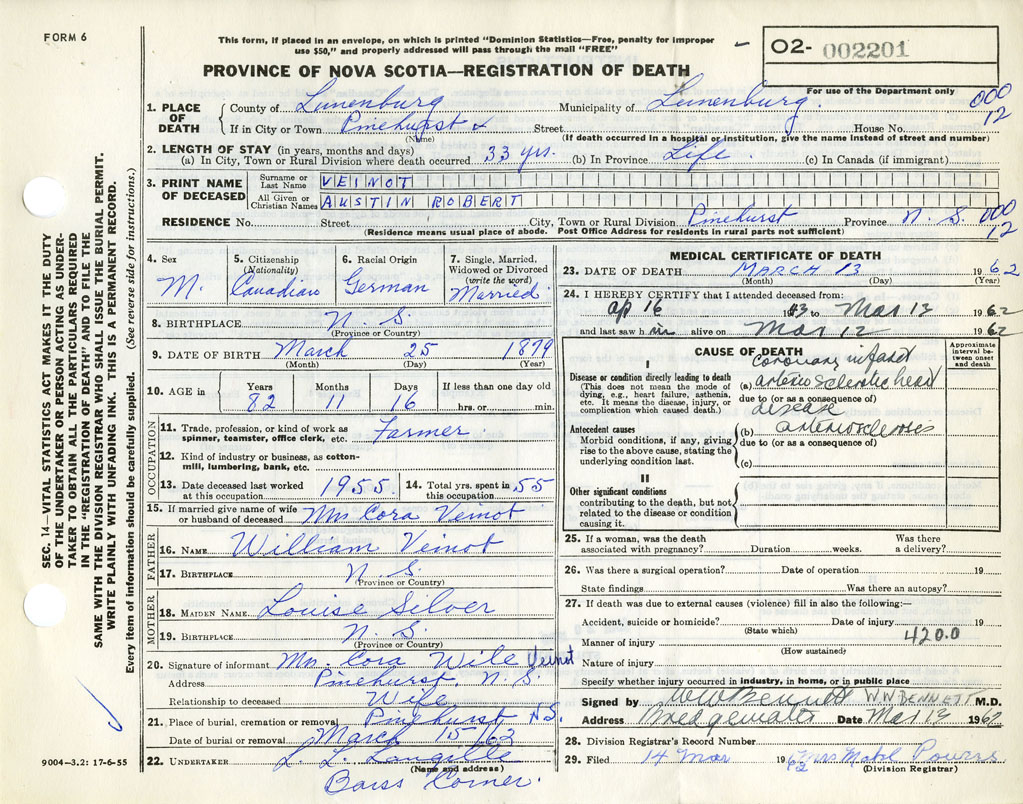 FORM 6
This form, if placed in an envelope, on which is printed "Dominion Statistics—Free, penalty for improper
use $50," and properly addressed will pass through the mail "FREE"
O2- 002201
PROVINCE OF NOVA SCOTIA—REGISTRATION OF DEATH
For use of the Department only
000
12
1. PLACE OF DEATH
County of Lunenburg Municipality of Lunenburg.
If in City or Town Pinehurst Street House No.
(Name) (If death occurred in a hospital or institution, give the name instead of street and number)
2. LENGTH OF STAY (in years, months and days)
(a) In City, Town or Rural Division where death occurred 33 yrs. (b) In Province Life. (c) In Canada (if immigrant)
3. PRINT NAME OF DECEASED
Surname or Last Name VEINOT
All Given or Christian Names AUSTIN ROBERT
RESIDENCE No. Street City, Town or Rural Division Pinehurst Province N.S. 000
(Residence means usual place of abode. Post Office Address for residents in rural parts not sufficient) 12
4. Sex M.
5. Citizenship (Nationality) Canadian
6. Racial Origin German
7. Single, Married, Widowed or Divorced (write the word) Married.
8. BIRTHPLACE N.S.
(Province or Country)
9. DATE OF BIRTH March 25 1879
(Month) (Day) (Year)
10. AGE in Years Months Days If less than one day old
82 11 16 hrs. or min.
OCCUPATION
11. Trade, profession, or kind of work as Farmer.
spinner, teamster, office clerk, etc.
12. Kind of industry or business, as cotton-
mill, lumbering, bank, etc.
13. Date deceased last worked at this occupation 1955. 14. Total yrs. spent in this occupation 55
15. If married give name of wife or husband of deceased Mrs Cora Veinot
FATHER
16. NAME William Veinot
17. BIRTHPLACE N.S.
(Province or Country)
MOTHER
18. MAIDEN NAME Louise Silver
19. BIRTHPLACE N.S.
(Province or Country)
20. Signature of informant Mrs. Cora Wile Veinot
Address Pinehurst, N.S.
Relationship to deceased Wife
21. Place of burial, cremation or removal Pinehurst N.S.
Date of burial or removal March 15/62
22. UNDERTAKER L. L. Langille
(Name and address)
Barss Corner.
MEDICAL CERTIFICATE OF DEATH
23. DATE OF DEATH MARCH 13 1962
(Month) (Day) (Year)
24. I HEREBY CERTIFY that I attended deceased from:
Ap 16 to Mar 13 1962
and last saw him alive on Mar 12 1962
CAUSE OF DEATH
Approximate interval between onset and death
I
Disease or condition directly leading to death
(This does not mean the mode of
dying, e.g., heart failure, asthenia,
etc. It means the disease, injury, or
complication which caused death.)
coronary infarct
(a) arterio sclerotic heart
due to (or as a consequence of)
disease
Antecedent causes
Morbid conditions, if any, giving
rise to the above cause, stating the
underlying condition last.
(b) arteriosclerosis
due to (or as a consequence of)
(c)
II
Other significant conditions
contributing to the death, but not
related to the disease or condition
causing it.
25. If a woman, was the death Was there
associated with pregnancy? Duration weeks. a delivery?
26. Was there a surgical operation? Date of operation 19
State findings Was there an autopsy?
27. If death was due to external causes (violence) fill in also the following:—
Accident, suicide or homicide? Date of injury 19
(State which) 420.0
Manner of injury
(How sustained)
Nature of injury
Specify whether injury occurred in industry, in home, or in public place
Signed by WW Bennett WW BENNETT M.D.
Address Bridgewater Date Mar 13 1962
28. Division Registrar's Record Number
29. Filed 14 Mar 1962 Mrs Mabel Powers
(Division Registrar)
SEC. 14—VITAL STATISTICS ACT MAKES IT THE DUTY
OF THE UNDERTAKER OR PERSON ACTING AS UNDER-
TAKER TO OBTAIN ALL THE PARTICULARS REQUIRED
IN THE "REGISTRATION OF DEATH" AND TO FILE THE
SAME WITH THE DIVISION REGISTRAR WHO SHALL ISSUE THE BURIAL PERMIT.
WRITE PLAINLY WITH UNFADING INK. THIS IS A PERMANENT RECORD.
Every item of information should be carefully supplied. (See reverse side for instructions.)
9004—3.2: 17-6-55